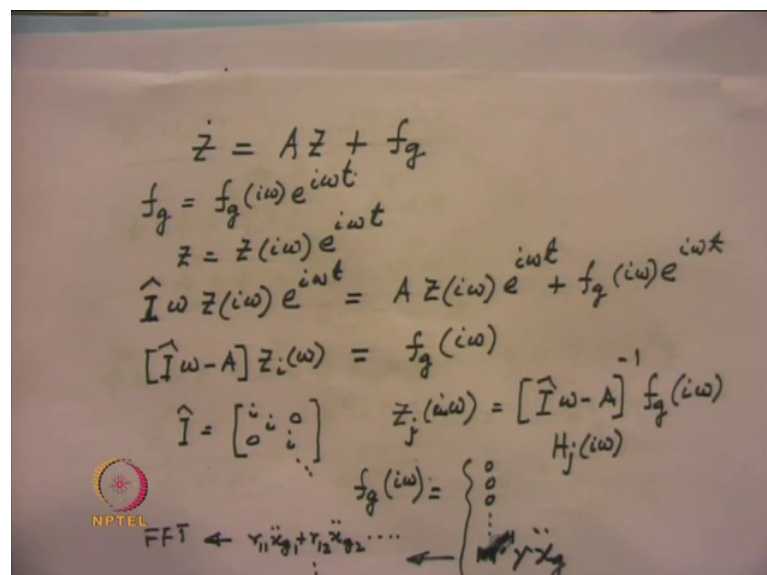 ż = A z + f_g
f_g = f_g(iω) e^{iωt}
z = z(iω) e^{iωt}
Î ω z(iω) e^{iωt} = A z(iω) e^{iωt} + f_g(iω) e^{iωt}
[Î ω - A] z_i(ω) = f_g(iω)
Î = [i i 0 0 i ⋱] z_j(iω) = [Î ω - A]^{-1} f_g(iω)
H_j(iω)
f_g(iω) = { 0 0 0 ⋮ r ẍ_g
NPTEL
FFT ← r_{11} ẍ_{g1} + r_{12} ẍ_{g2} ···· ←